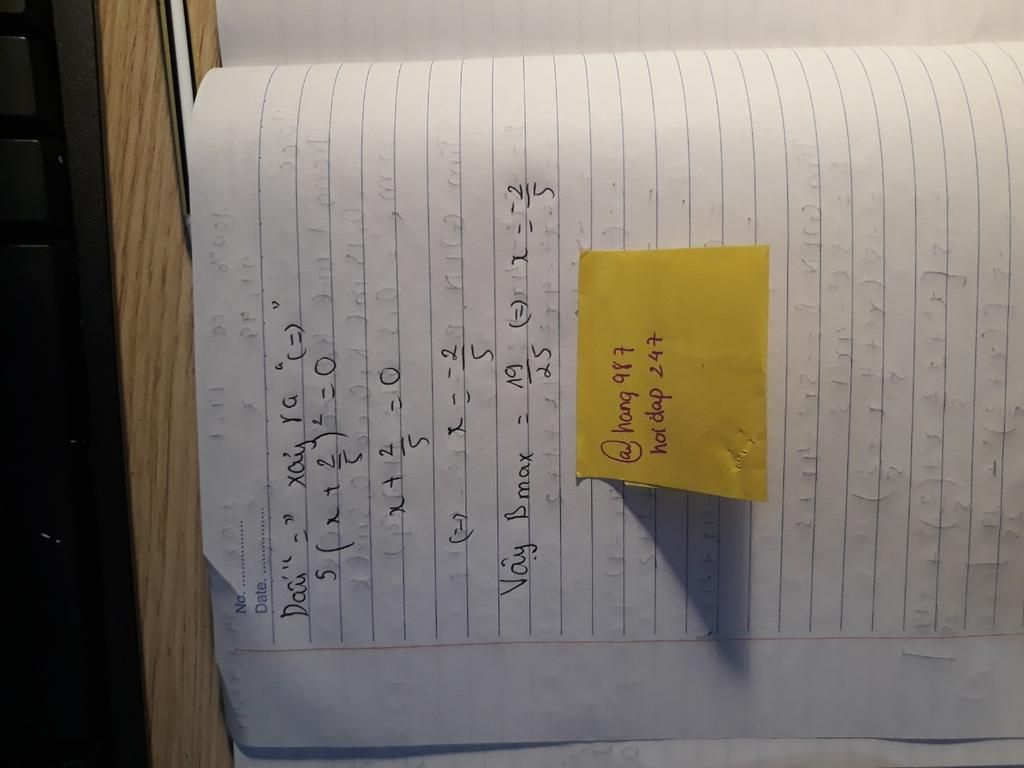 No. ............
Date. ..................
Dấu "=" xảy ra "(=)"
5 (x + 2/5)² = 0
x + 2/5 = 0
(=) x = -2/5
Vậy Bmax = 19/25 (=) x = -2/5
@hang987
hoidap 247